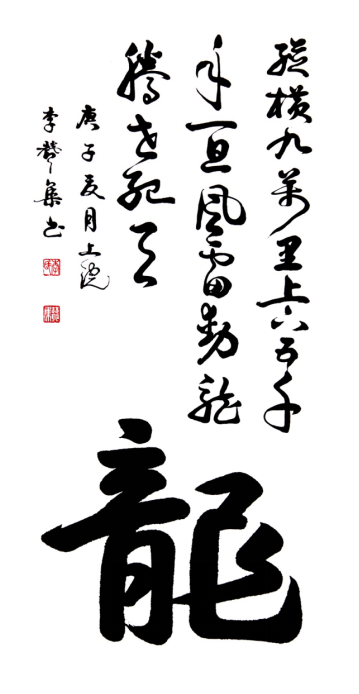 縱橫九萬里上下五千
年一旦風雷動龍
騰
庚子夏月上浣
李贊集书
龍